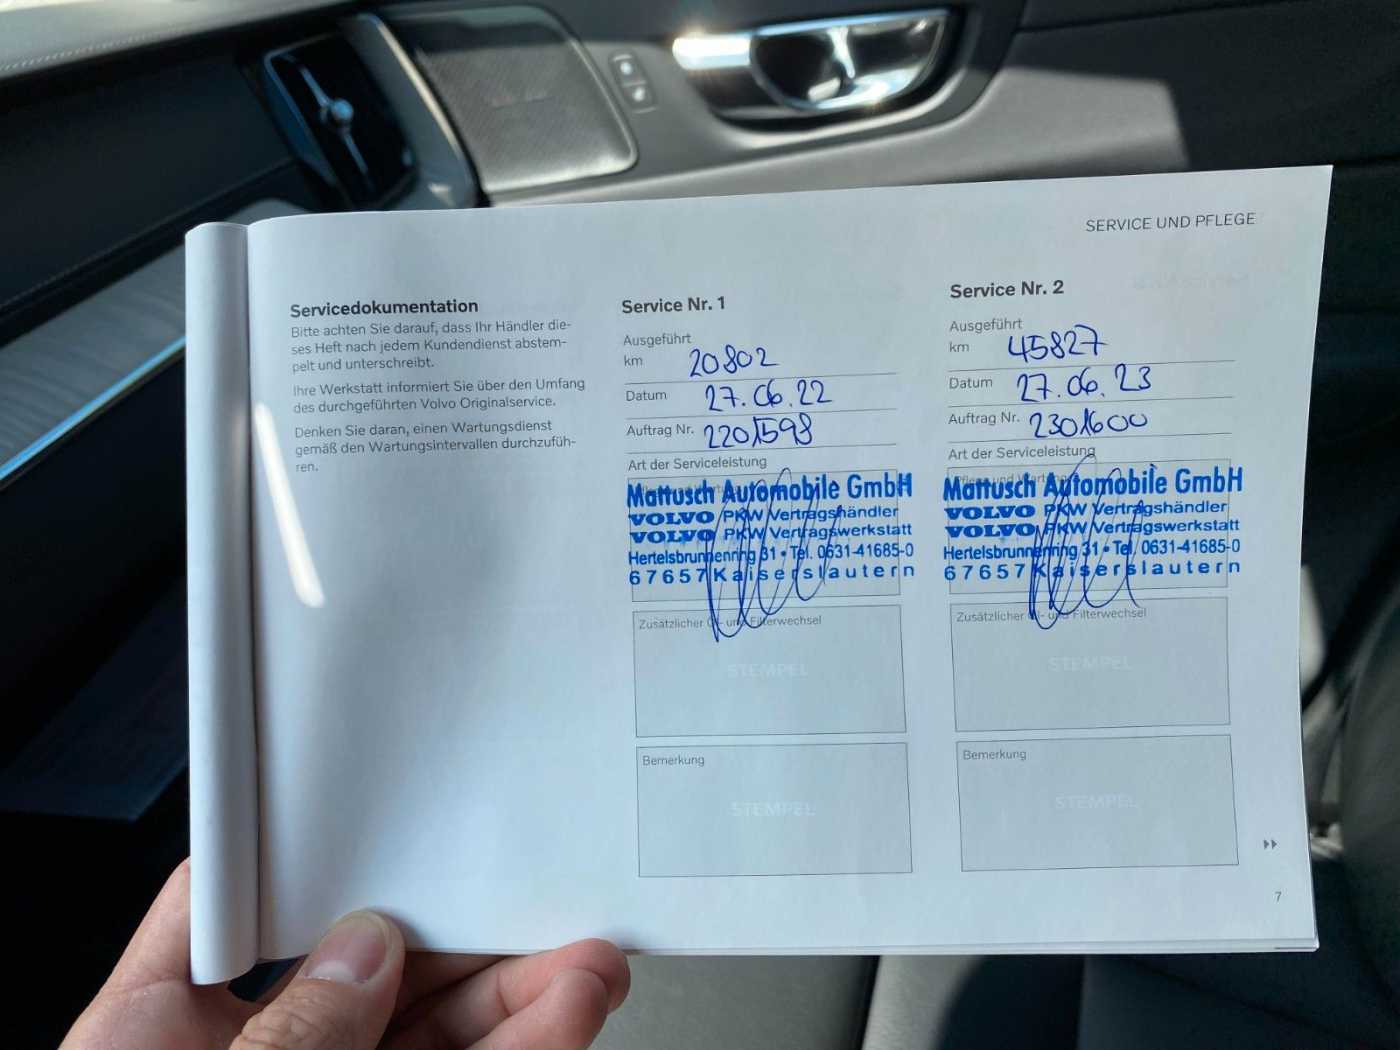 SERVICE UND PFLEGE
Servicedokumentation
Bitte achten Sie darauf, dass Ihr Händler die-
ses Heft nach jedem Kundendienst abstem-
pelt und unterschreibt.
Ihre Werkstatt informiert Sie über den Umfang
des durchgeführten Volvo Originalservice.
Denken Sie daran, einen Wartungsdienst
gemäß den Wartungsintervallen durchzufüh-
ren.
Service Nr. 1
Ausgeführt
km 20802
Datum 27.06.22
Auftrag Nr. 2201598
Art der Serviceleistung
Mattusch Automobile GmbH
VOLVO PKW Vertragshändler
VOLVO PKW Vertragswerkstatt
Hertelsbrunnenring 31 • Tel. 0631-41685-0
67657 Kaiserslautern
Zusätzlicher Öl- und Filterwechsel
STEMPEL
Bemerkung
STEMPEL
Service Nr. 2
Ausgeführt
km 45827
Datum 27.06.23
Auftrag Nr. 2301600
Art der Serviceleistung
Mattusch Automobile GmbH
VOLVO PKW Vertragshändler
VOLVO PKW Vertragswerkstatt
Hertelsbrunnenring 31 • Tel. 0631-41685-0
67657 Kaiserslautern
Zusätzlicher Öl- und Filterwechsel
STEMPEL
Bemerkung
STEMPEL
7